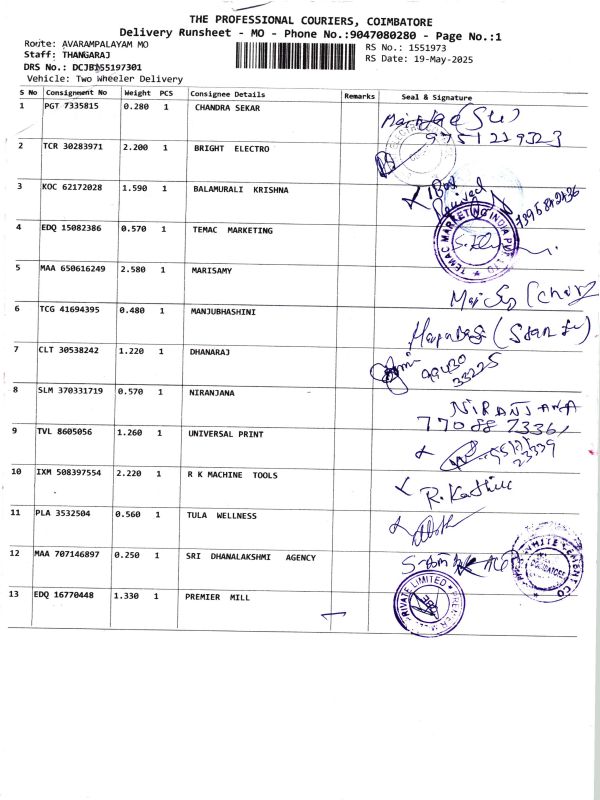 THE PROFESSIONAL COURIERS, COIMBATORE
Delivery Runsheet - MO - Phone No.:9047080280 - Page No.:1
Route: AVARAMPALAYAM MO
RS No.: 1551973
Staff: THANGARAJ
RS Date: 19-May-2025
DRS No.: DCJB155197301
Vehicle: Two Wheeler Delivery
S No Consignment No Weight PCS Consignee Details Remarks Seal & Signature
1 PGT 7335815 0.280 1 CHANDRA SEKAR
2 TCR 30283971 2.200 1 BRIGHT ELECTRO
3 KOC 62172028 1.590 1 BALAMURALI KRISHNA
4 EDQ 15082386 0.570 1 TEMAC MARKETING
TEMAC MARKETING INDIA PVT LTD
5 MAA 650616249 2.580 1 MARISAMY
6 TCG 41694395 0.480 1 MANJUBHASHINI
7 CLT 30538242 1.220 1 DHANARAJ
99430
33225
8 SLM 370331719 0.570 1 NIRANJANA
NIRANJANA
77088 73361
9 TVL 8605056 1.260 1 UNIVERSAL PRINT
10 IXM 508397554 2.220 1 R K MACHINE TOOLS
11 PLA 3532504 0.560 1 TULA WELLNESS
12 MAA 707146897 0.250 1 SRI DHANALAKSHMI AGENCY
13 EDQ 16770448 1.330 1 PREMIER MILL
PRIVATE LIMITED